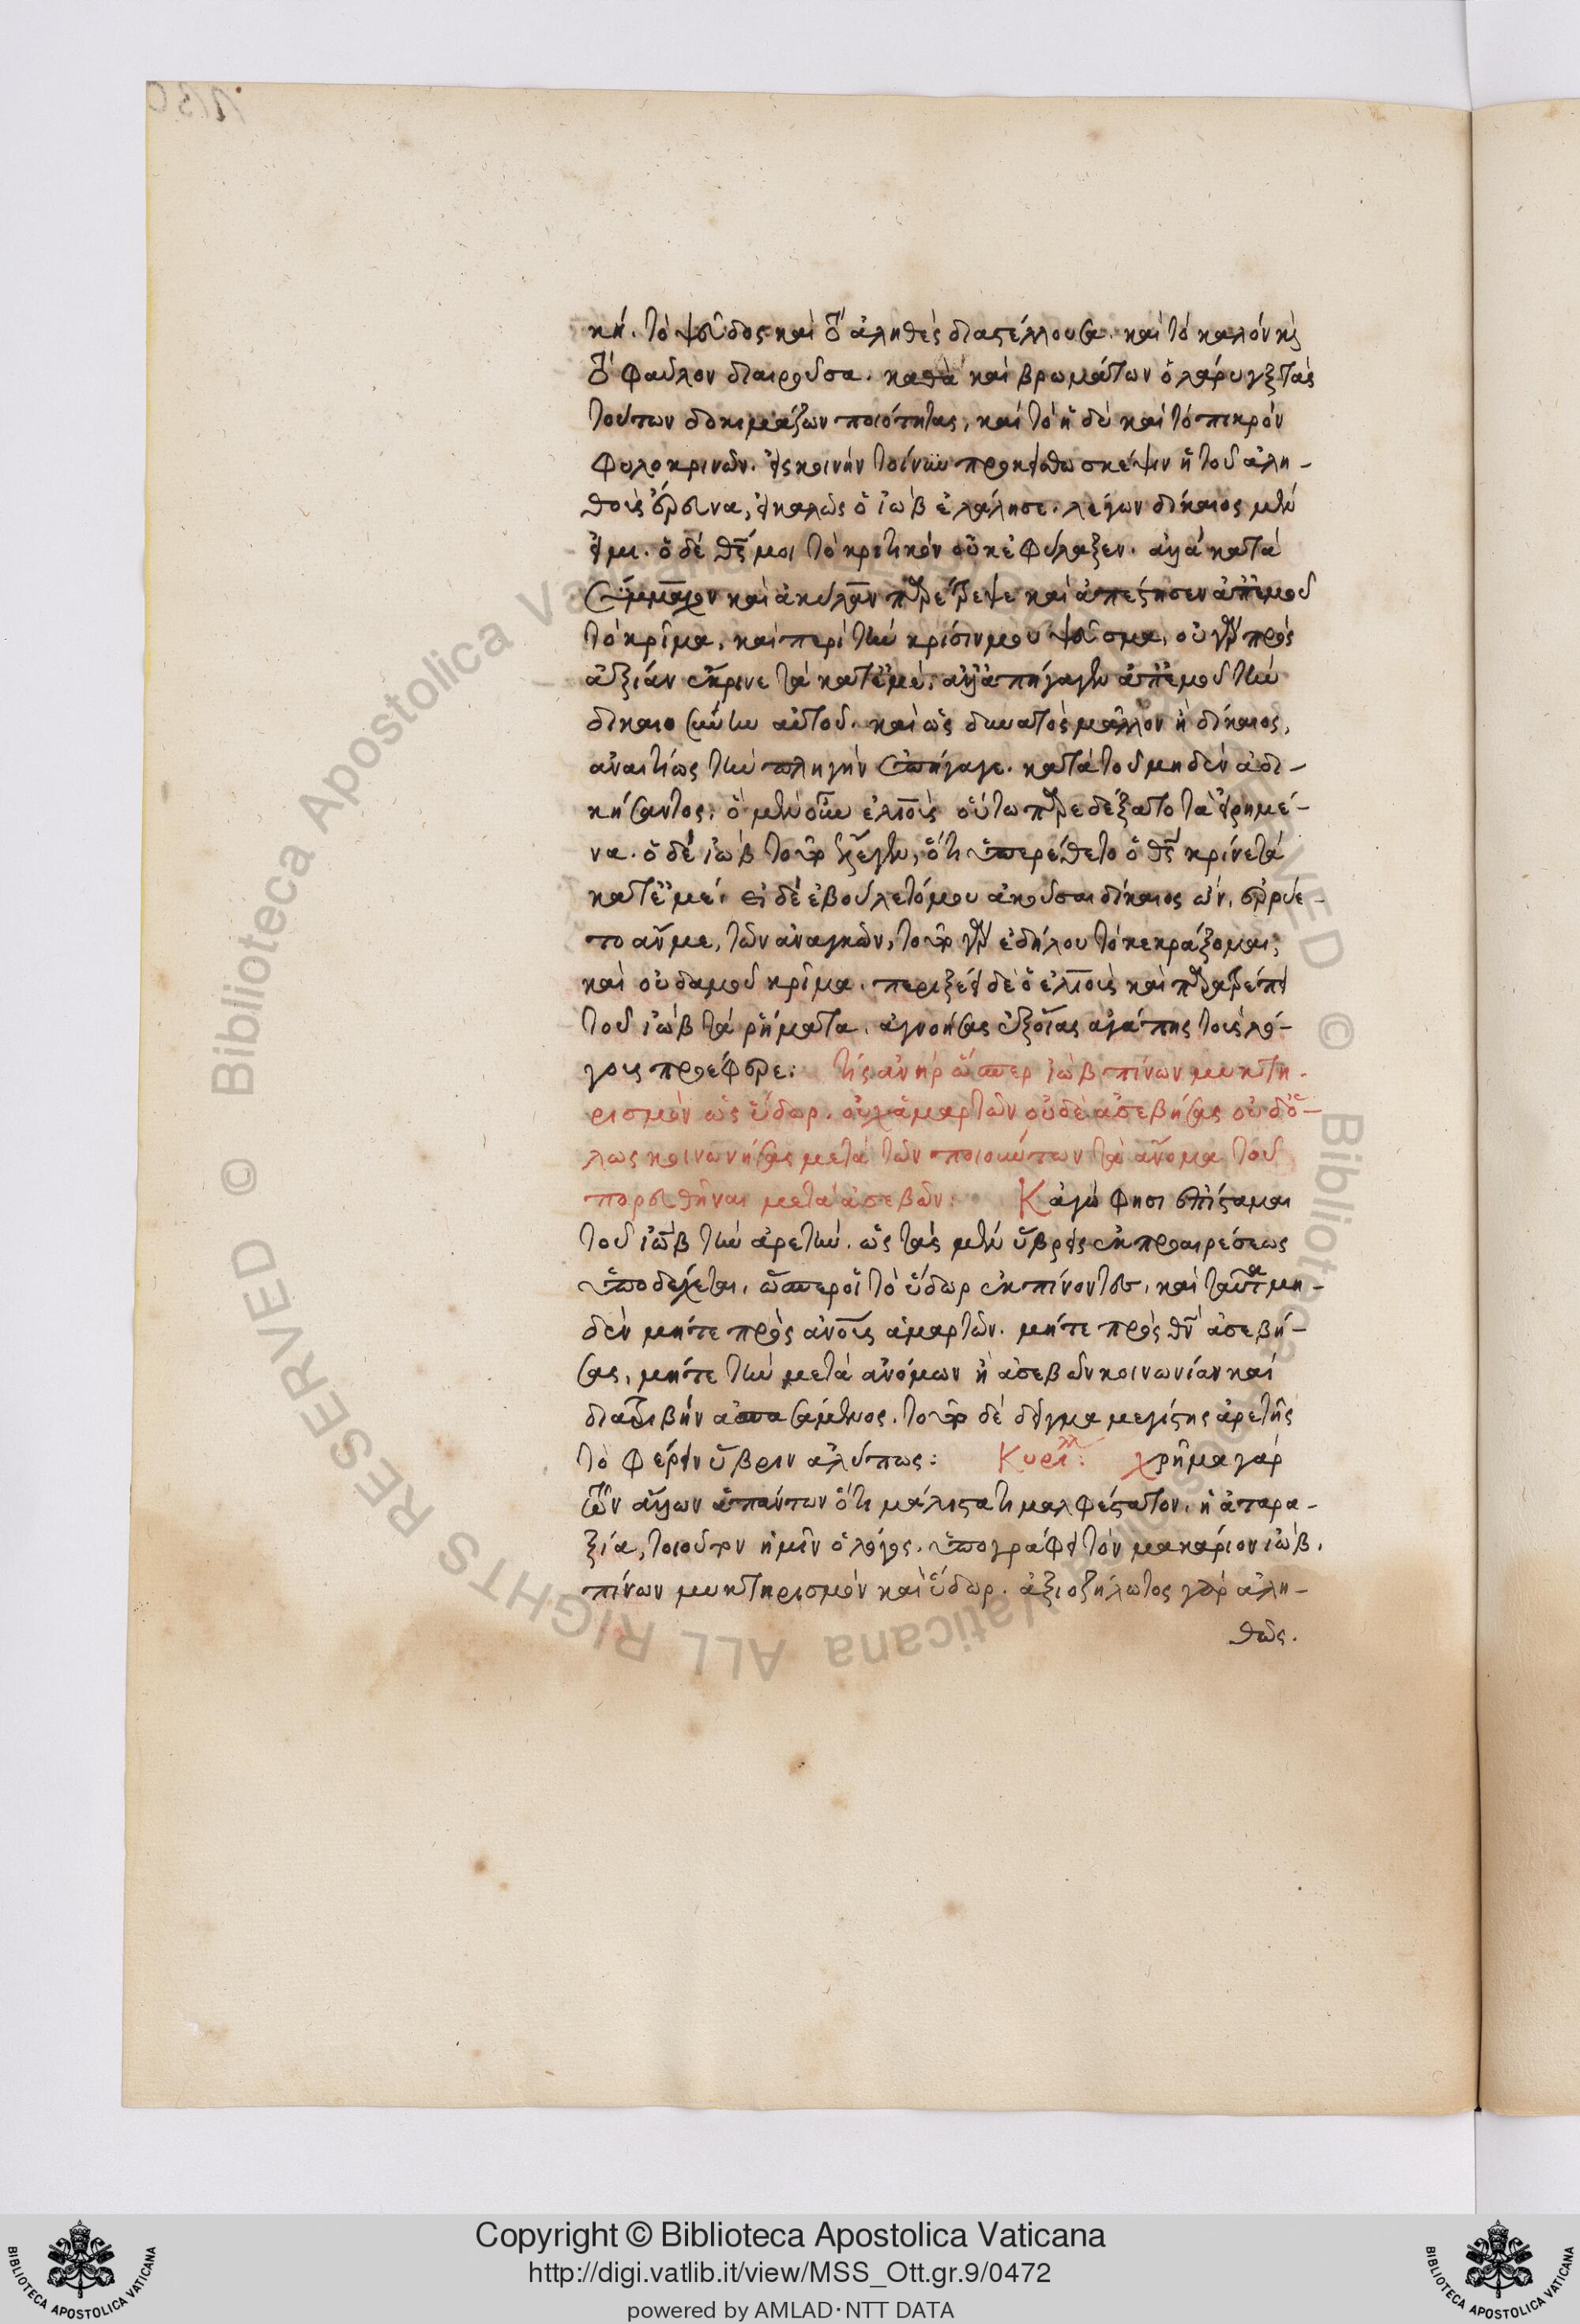 κή. τὸ ψεῦδος καὶ τὸ ἀληθὲς διαστέλλουσα. καὶ τὸ καλὸν καὶ
τὸ φαῦλον διαιροῦσα. καθὰ καὶ βρωμάτων ὁ λάρυγξ τὰς
τούτων δοκιμάζων ποιότητας, καὶ τὸ ἡδὺ καὶ τὸ πικρὸν
φυλοκρινῶν. εἰς κοινὴν τοίνυν προκείσθω σκέψιν ἡ τοῦ ἀλη-
θοῦς ἔρευνα, εἰ καλῶς ὁ ἰὼβ ἐλάλησε. λέγων δίκαιος μὲν
εἰμι. ὁ δὲ θς μοι τὸ κριτικὸν οὐκ ἐφύλαξεν. ἀλλὰ κατὰ
σύμμαχον καὶ ἀκύλαν παρέτρεψε καὶ ἀπέστησεν ἀπ' ἐμοῦ
τὸ κρῖμα, καὶ περὶ τὴν κρίσιν μου ψεῦσμα, οὐ γὰρ πρὸς
ἀξίαν ἔκρινε τὰ κατ' ἐμέ. ἀλλ' ἀπήγαγεν ἀπ' ἐμοῦ τὴν
δικαιοσύνην αὐτοῦ. καὶ ὡς δυνατὸς μᾶλλον ἢ δίκαιος,
ἀναιτίως τὴν πληγὴν ἐπήγαγε. κατὰ τοῦ μηδὲν ἀδι-
κήσαντος. ὁ μὲν οὖν ἐλιοὺς οὕτω παρεδέξατο τὰ εἰρημέ-
να. ὁ δὲ ἰὼβ τοῦτο ἔλεγεν, ὅτι ὑπερέθετο ὁ θς κρίνε τὰ
κατ' ἐμέ. εἰ δὲ ἐβούλετό μου ἀκοῦσαι δίκαιος ὤν, ἐρρύε-
το ἄν με, τῶν ἀναγκῶν, τοῦτο γὰρ ἐδήλου τὸ κεκράξομαι,
καὶ οὐδαμοῦ κρῖμα. περιξέει δὲ ὁ ἐλιοὺς καὶ παρατρέπει
τοῦ ἰὼβ τὰ ῥήματα. ἀγνοήσας ἐξ οἵας ἀγάπης τοὺς λό-
γους προέφερε: τίς ἀνὴρ ὥσπερ ἰὼβ πίνων μυκτη-
ρισμὸν ὡς ὕδωρ. οὐχ ἁμαρτὼν οὐδὲ ἀσεβήσας οὐδ' ὅ-
λως κοινωνήσας μετὰ τῶν ποιούντων τὰ ἄνομα τοῦ
πορευθῆναι μετὰ ἀσεβῶν: Κἀγώ φησι ἐπίσταμαι
τοῦ ἰὼβ τὴν ἀρετήν. ὡς τὰς μὲν ὕβρεις ἐκ προαιρέσεως
ὑποδέχεται, ὥσπερ οἱ τὸ ὕδωρ ἐκπίνοντες, καὶ ταῦτα μη-
δὲν μήτε πρὸς ἀνους ἁμαρτών. μήτε πρὸς θν ἀσεβή-
σας, μήτε τὴν μετὰ ἀνόμων ἢ ἀσεβῶν κοινωνίαν καὶ
διατριβὴν ἀσπασάμενος. τοῦτο δὲ δεῖγμα μεγίστης ἀρετῆς
τὸ φέρειν ὕβριν ἀλύπως: Κυρίλλ: χρῆμα γὰρ
τῶν ἄλλων ἁπάντων ὅτι μάλιστα τιμαλφέστατον. ἡ ἀταρα-
ξία, τοιοῦτον ἡμῖν ὁ λόγος. ὑπογράφει τὸν μακάριον ἰώβ.
πίνων μυκτηρισμὸν καὶ ὕδωρ. ἀξιοζήλωτος γὰρ ἀλη-
θῶς.
© Biblioteca Apostolica Vaticana ALL RIGHTS RESERVED
Copyright © Biblioteca Apostolica Vaticana
http://digi.vatlib.it/view/MSS_Ott.gr.9/0472
powered by AMLAD·NTT DATA
BIBLIOTECA APOSTOLICA VATICANA
BIBLIOTECA APOSTOLICA VATICANA